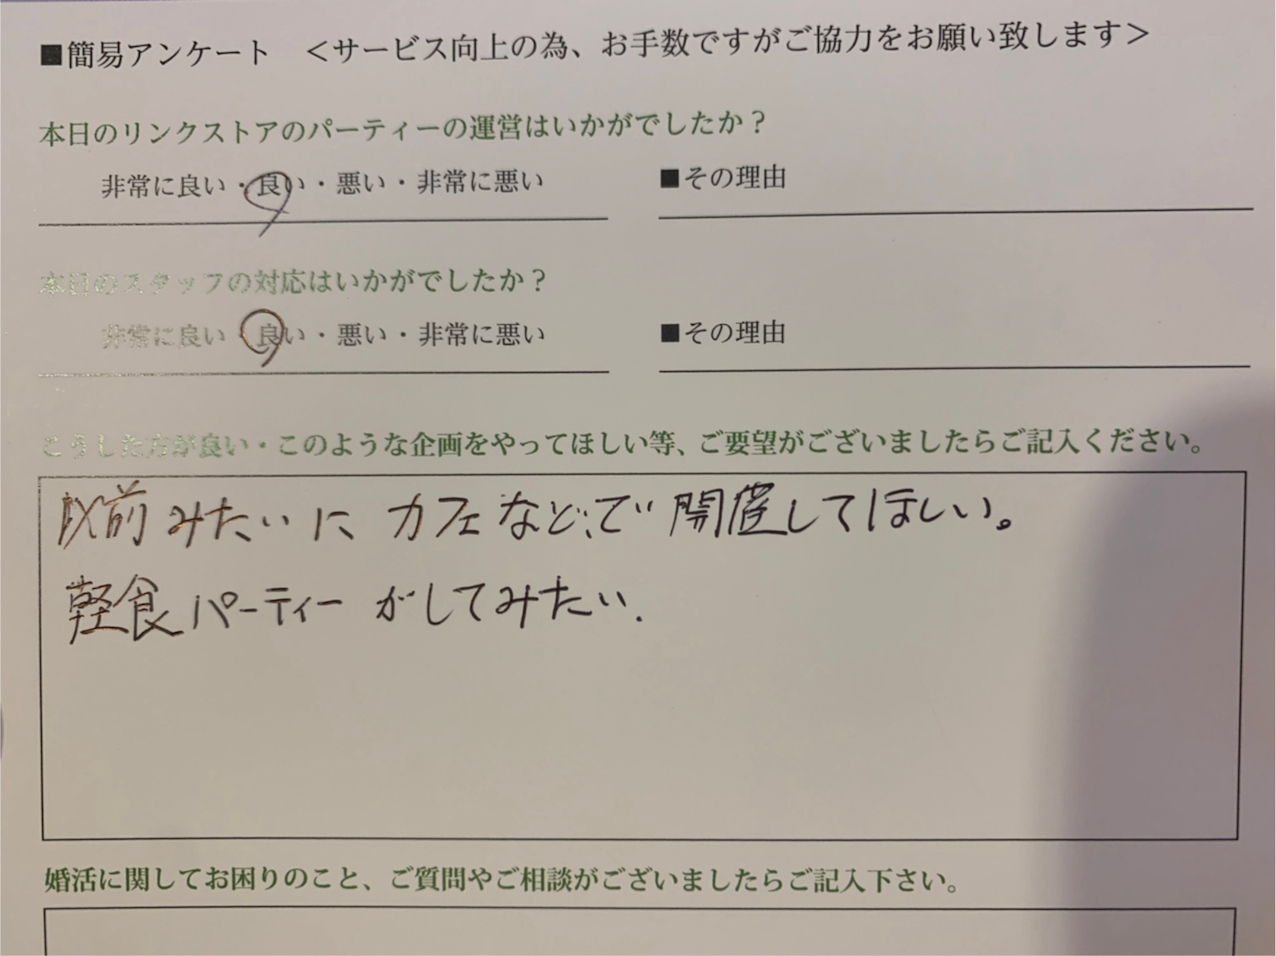 ■簡易アンケート　＜サービス向上の為、お手数ですがご協力をお願い致します＞
本日のリンクストアのパーティーの運営はいかがでしたか？
非常に良い・良い・悪い・非常に悪い
■その理由
本日のスタッフの対応はいかがでしたか？
非常に良い・良い・悪い・非常に悪い
■その理由
こうした方が良い・このような企画をやってほしい等、ご要望がございましたらご記入ください。
以前みたいに カフェなどで開催してほしい。
軽食パーティーがしてみたい.
婚活に関してお困りのこと、ご質問やご相談がございましたらご記入下さい。